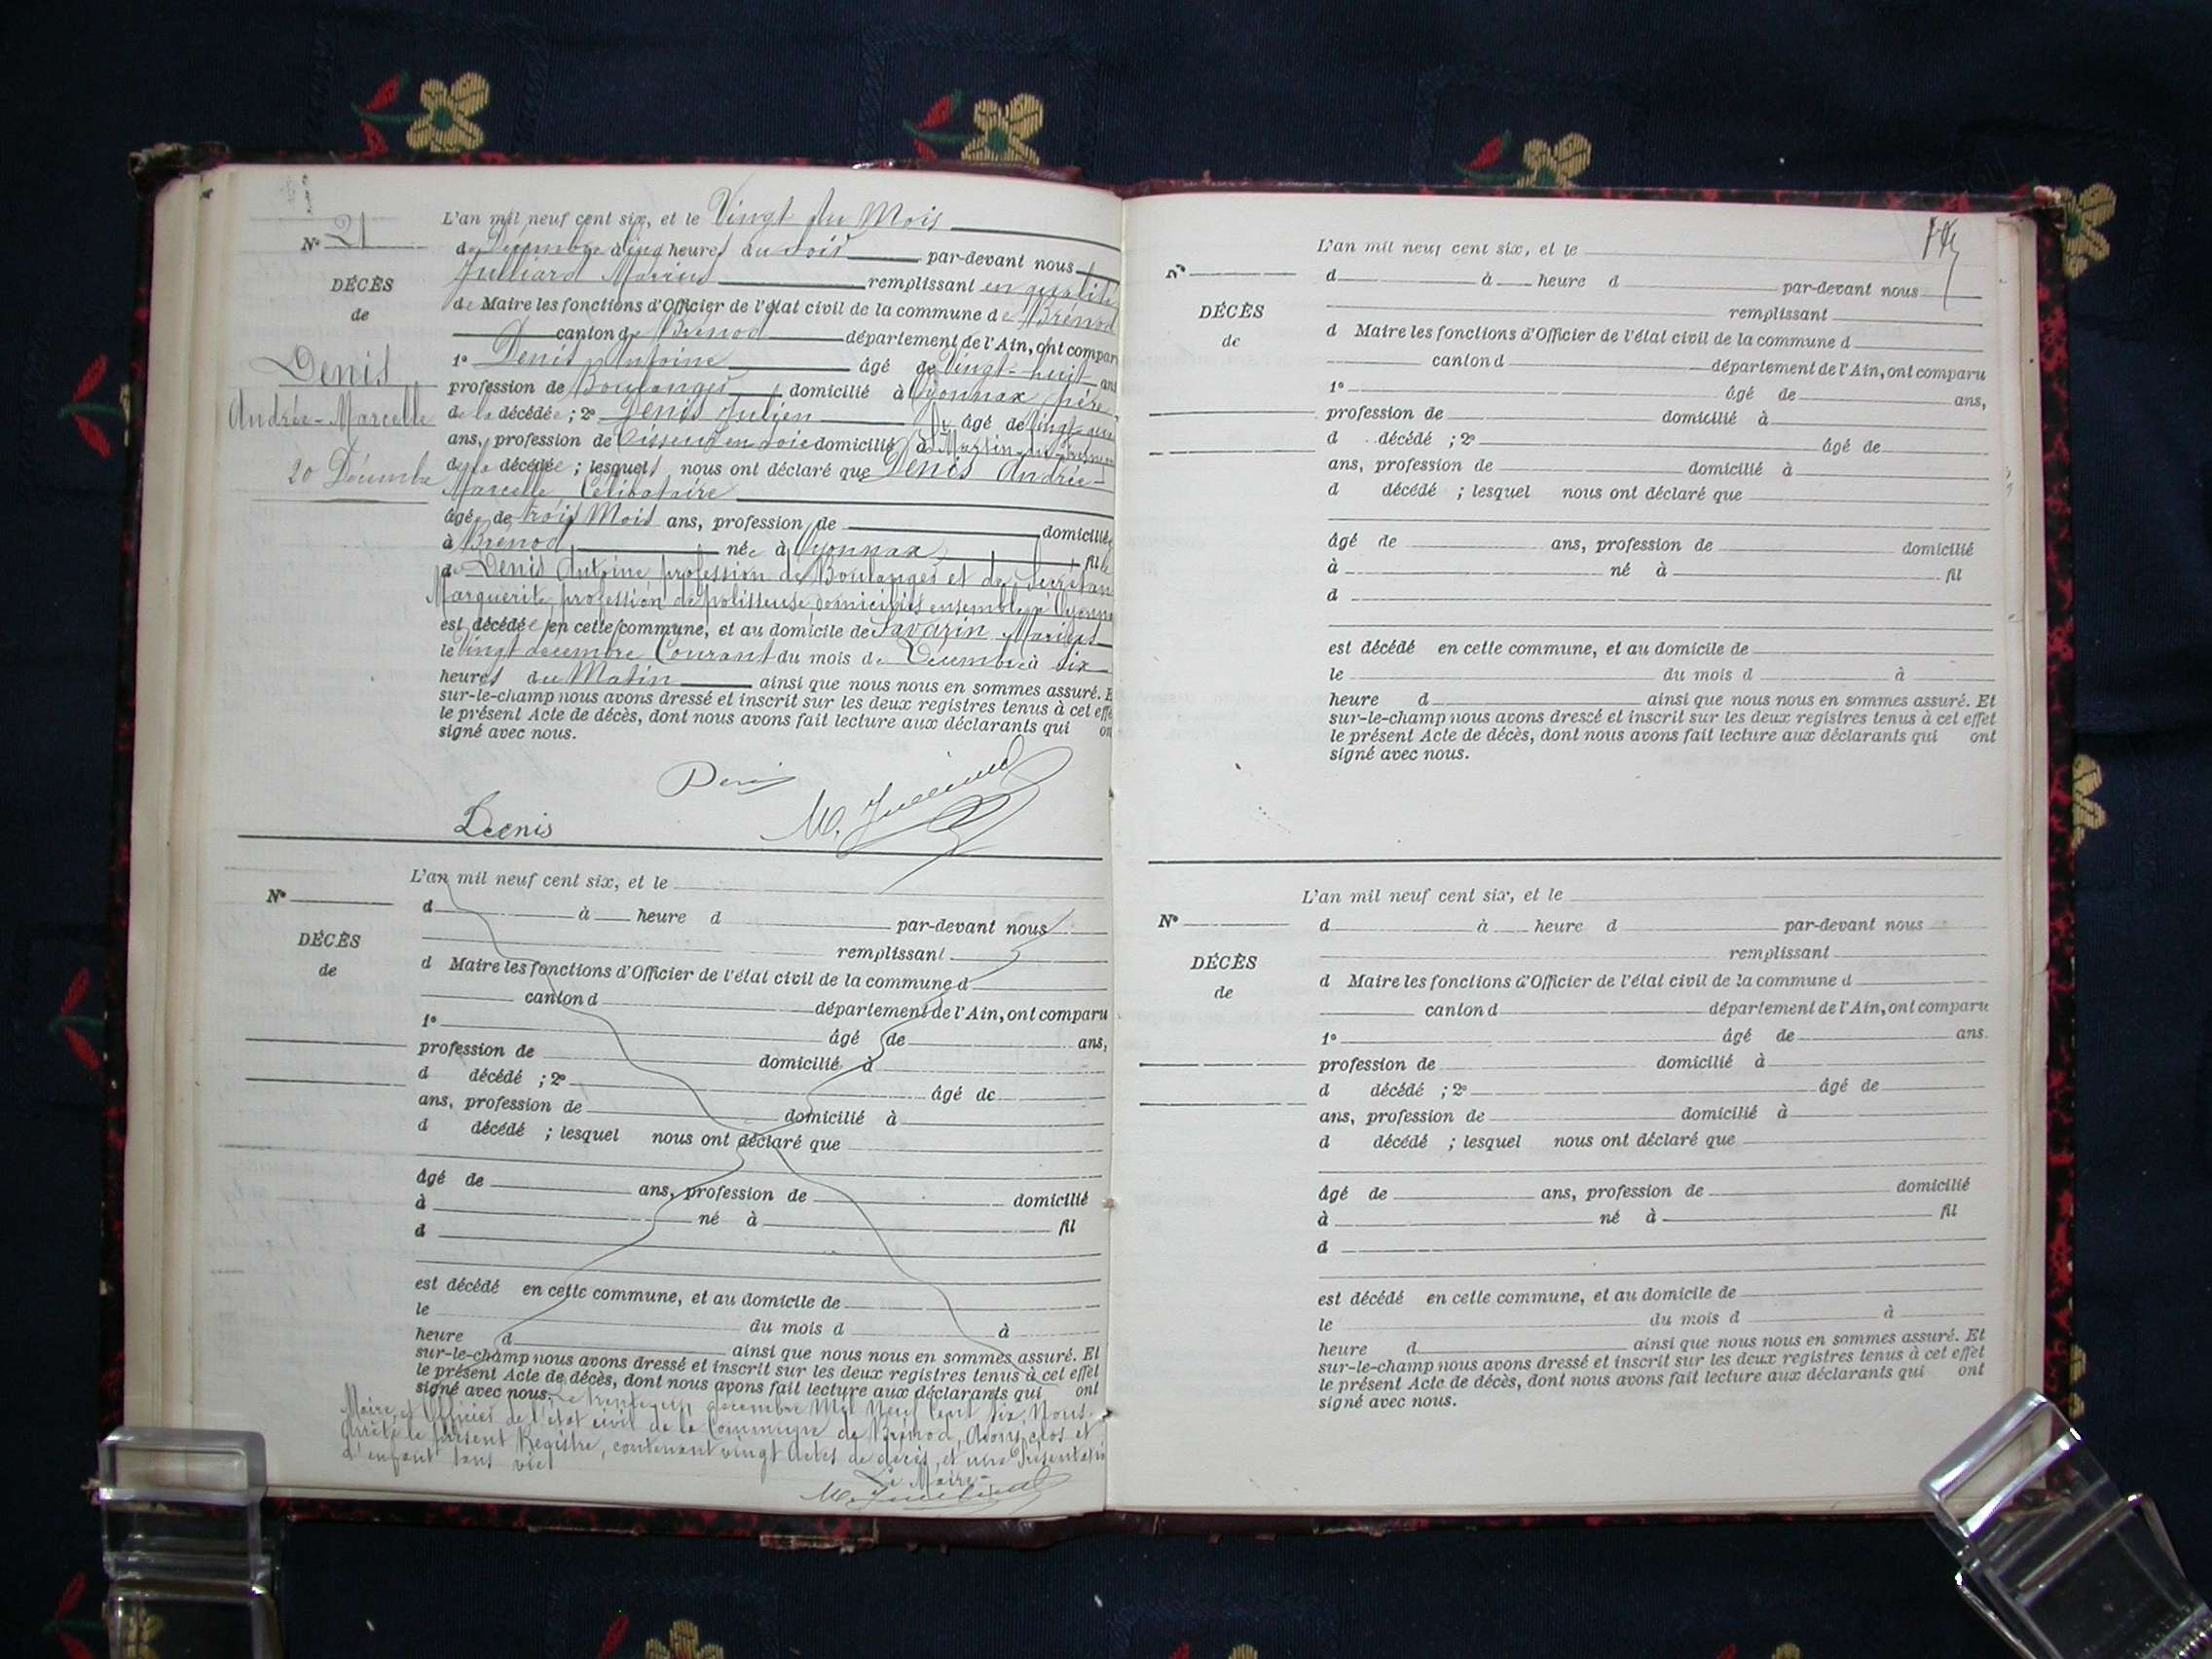 N° 21
DÉCÈS
de
Denis
Andrée-Marcelle
20 Décembre
L'an mil neuf cent six, et le Vingt du Mois
de Décembre à cinq heures du soir par-devant nous
Julliard Marius remplissant en qualité
de Maire les fonctions d'Officier de l'état civil de la commune de Brénod
canton de Brénod département de l'Ain, ont comparu
1° Denis Antoine âgé de Vingt-huit ans
profession de Boulanger domicilié à Oyonnax père
de la décédée ; 2° Denis Julien âgé de
ans, profession de Tisseur en soie domicilié à
de la décédée ; lesquels nous ont déclaré que Denis Andrée-
Marcelle Célibataire
âgée de trois Mois ans, profession de domiciliée
à Brénod née à Oyonnax fille
de Denis Antoine profession de Boulanger et de
Marguerite profession de polisseuse domiciliés ensemble à Oyonnax
est décédée en cette commune, et au domicile de Savarin Marius
le Vingt décembre Courant du mois de Décembre à six
heures du Matin ainsi que nous nous en sommes assuré. E
sur-le-champ nous avons dressé et inscrit sur les deux registres tenus à cet effe
le présent Acte de décès, dont nous avons fait lecture aux déclarants qui on
signé avec nous.
Denis
M. Julliard
Denis
N°
DÉCÈS
de
L'an mil neuf cent six, et le
d à heure d par-devant nous
remplissant
d Maire les fonctions d'Officier de l'état civil de la commune d
canton d département de l'Ain, ont comparu
1° âgé de ans,
profession de domicilié à
d décédé ; 2° âgé de
ans, profession de domicilié à
d décédé ; lesquel nous ont déclaré que
âgé de ans, profession de domicilié
à né à fil
d
est décédé en cette commune, et au domicile de
le du mois d à
heure d ainsi que nous nous en sommes assuré. Et
sur-le-champ nous avons dressé et inscrit sur les deux registres tenus à cet effet
le présent Acte de décès, dont nous avons fait lecture aux déclarants qui ont
signé avec nous. Le trente-un décembre Mil Neuf Cent Six, Nous
Maire, et Officier de l'état civil de la Commune de Brénod, Avons clos et
Arrêté le présent Registre, contenant vingt Actes de décès, et une Présentation
d'enfant sans vie
Le Maire-
M. Julliard
N°
DÉCÈS
de
L'an mil neuf cent six, et le
d à heure d par-devant nous
remplissant
d Maire les fonctions d'Officier de l'état civil de la commune d
canton d département de l'Ain, ont comparu
1° âgé de ans,
profession de domicilié à
d décédé ; 2° âgé de
ans, profession de domicilié à
d décédé ; lesquel nous ont déclaré que
âgé de ans, profession de domicilié
à né à fil
d
est décédé en cette commune, et au domicile de
le du mois d à
heure d ainsi que nous nous en sommes assuré. Et
sur-le-champ nous avons dressé et inscrit sur les deux registres tenus à cet effet
le présent Acte de décès, dont nous avons fait lecture aux déclarants qui ont
signé avec nous.
N°
DÉCÈS
de
L'an mil neuf cent six, et le
d à heure d par-devant nous
remplissant
d Maire les fonctions d'Officier de l'état civil de la commune d
canton d département de l'Ain, ont comparu
1° âgé de ans.
profession de domicilié à
d décédé ; 2° âgé de
ans, profession de domicilié à
d décédé ; lesquel nous ont déclaré que
âgé de ans, profession de domicilié
à né à fil
d
est décédé en cette commune, et au domicile de
le du mois d à
heure d ainsi que nous nous en sommes assuré. Et
sur-le-champ nous avons dressé et inscrit sur les deux registres tenus à cet effet
le présent Acte de décès, dont nous avons fait lecture aux déclarants qui ont
signé avec nous.